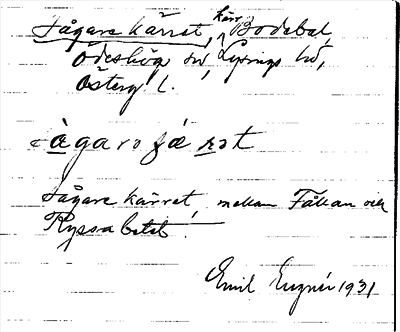 Sågare kärret, kärr Bodebol,
Ödeshög sn, Lysings hd,
Österg l.
sàgaro ɟá ret
Sågare kärret, mellan Fållan och
Ryssa betet.
Emil Eugnér 1931